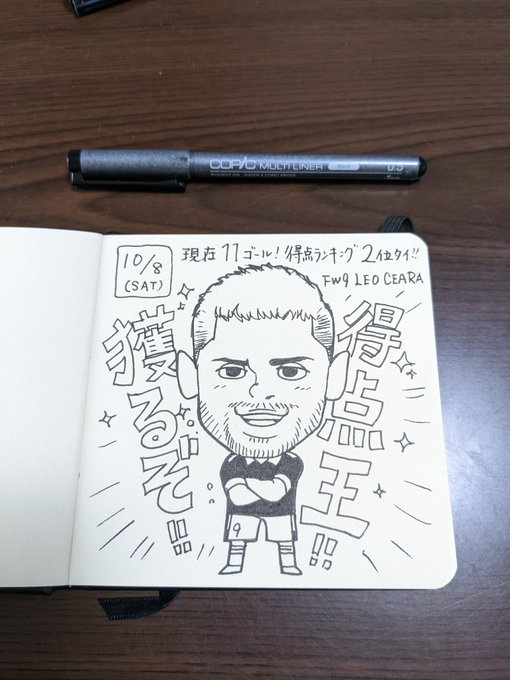 COPIC MULTI LINER 0.5
10/8
(SAT)
現在11ゴール！得点ランキング2位タイ!!
FW9 LEO CEARA
得点王!!
獲るぞ!!
9